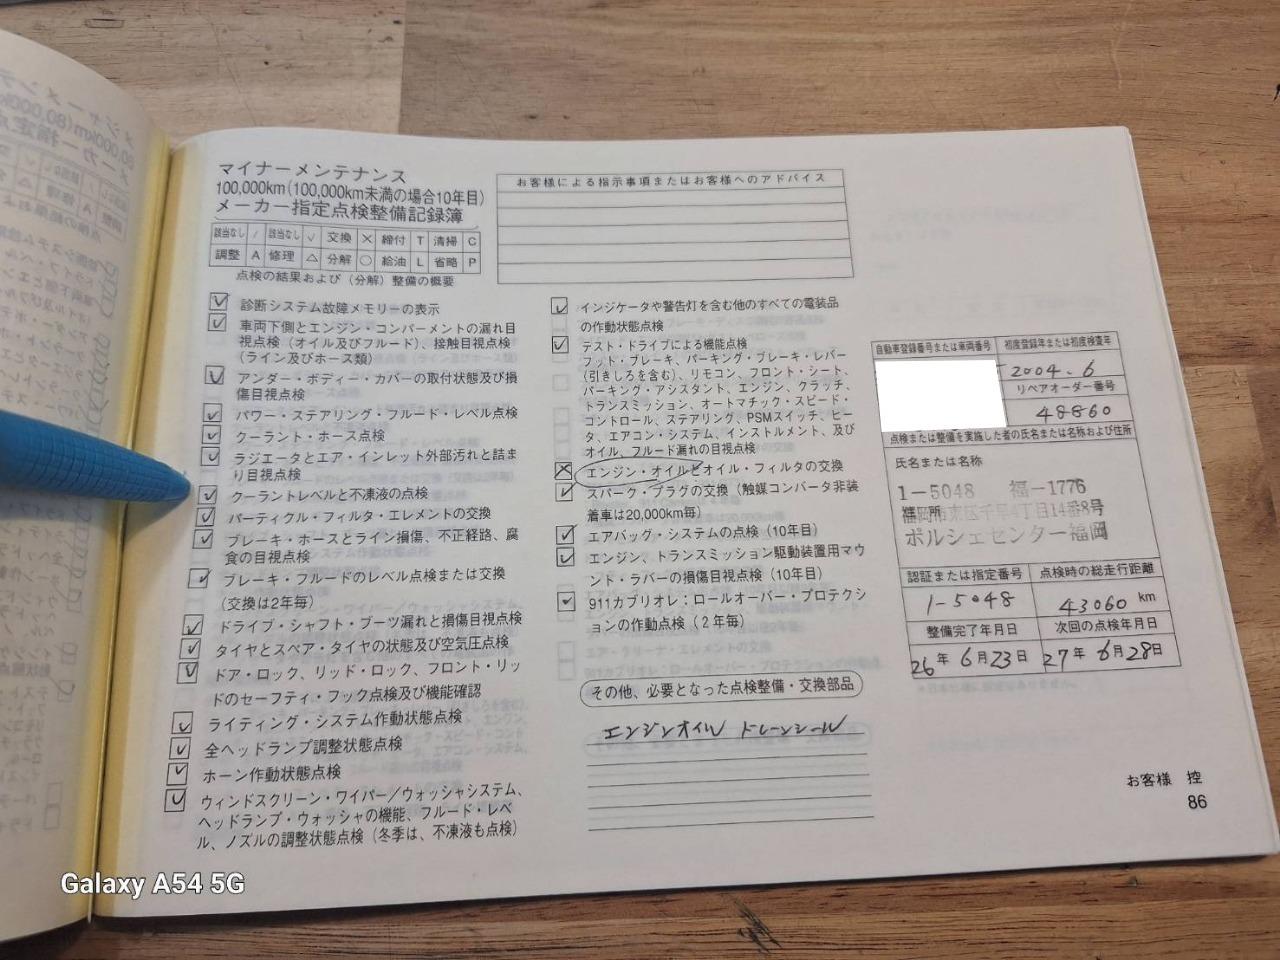 マイナーメンテナンス
100,000km(100,000km未満の場合10年目)
メーカー指定点検整備記録簿
該当なし / 該当なし √ 交換 × 締付 T 清掃 C
調整 A 修理 △ 分解 ○ 給油 L 省略 P
点検の結果および（分解）整備の概要
診断システム故障メモリーの表示
車両下側とエンジン・コンパーメントの漏れ目
視点検（オイル及びフルード）、接触目視点検
（ライン及びホース類）
アンダー・ボディー・カバーの取付状態及び損
傷目視点検
パワー・ステアリング・フルード・レベル点検
クーラント・ホース点検
ラジエータとエア・インレット外部汚れと詰ま
り目視点検
クーラントレベルと不凍液の点検
パーティクル・フィルタ・エレメントの交換
ブレーキ・ホースとライン損傷、不正経路、腐
食の目視点検
ブレーキ・フルードのレベル点検または交換
（交換は2年毎）
ドライブ・シャフト・ブーツ漏れと損傷目視点検
タイヤとスペア・タイヤの状態及び空気圧点検
ドア・ロック、リッド・ロック、フロント・リッ
ドのセーフティ・フック点検及び機能確認
ライティング・システム作動状態点検
全ヘッドランプ調整状態点検
ホーン作動状態点検
ウィンドスクリーン・ワイパー／ウォッシャシステム、
ヘッドランプ・ウォッシャの機能、フルード・レベ
ル、ノズルの調整状態点検（冬季は、不凍液も点検）
お客様による指示事項またはお客様へのアドバイス
インジケータや警告灯を含む他のすべての電装品
の作動状態点検
テスト・ドライブによる機能点検
フット・ブレーキ、パーキング・ブレーキ・レバー
（引きしろを含む）、リモコン、フロント・シート、
パーキング・アシスタント、エンジン、クラッチ、
トランスミッション、オートマチック・スピード・
コントロール、ステアリング、PSMスイッチ、ヒー
タ、エアコン・システム、インストルメント、及び
オイル、フルード漏れの目視点検
エンジン・オイルとオイル・フィルタの交換
スパーク・プラグの交換（触媒コンバータ非装
着車は20,000km毎）
エアバッグ・システムの点検（10年目）
エンジン、トランスミッション駆動装置用マウ
ント・ラバーの損傷目視点検（10年目）
911カブリオレ：ロールオーバー・プロテクシ
ョンの作動点検（2年毎）
その他、必要となった点検整備・交換部品
エンジンオイル ドレーンシール
自動車登録番号または車両番号 初度登録年または初度検査年
2004.6
リペアオーダー番号
48860
点検または整備を実施した者の氏名または名称および住所
氏名または名称
1-5048 福-1776
福岡市東区千早4丁目14番8号
ポルシェセンター福岡
認証または指定番号 点検時の総走行距離
1-5048 43060 km
整備完了年月日 次回の点検年月日
26年 6月23日 27年 6月28日
お客様 控
86
Galaxy A54 5G